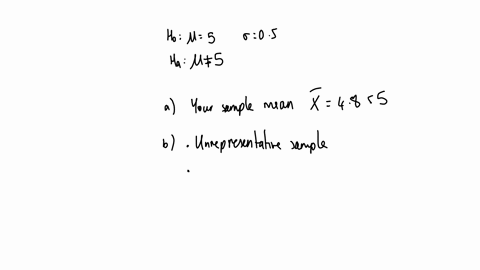 H₀: μ = 5 σ = 0.5
Hₐ: μ ≠ 5
a) Your sample mean X̄ = 4.8 < 5
b) • Unrepresentative sample
•